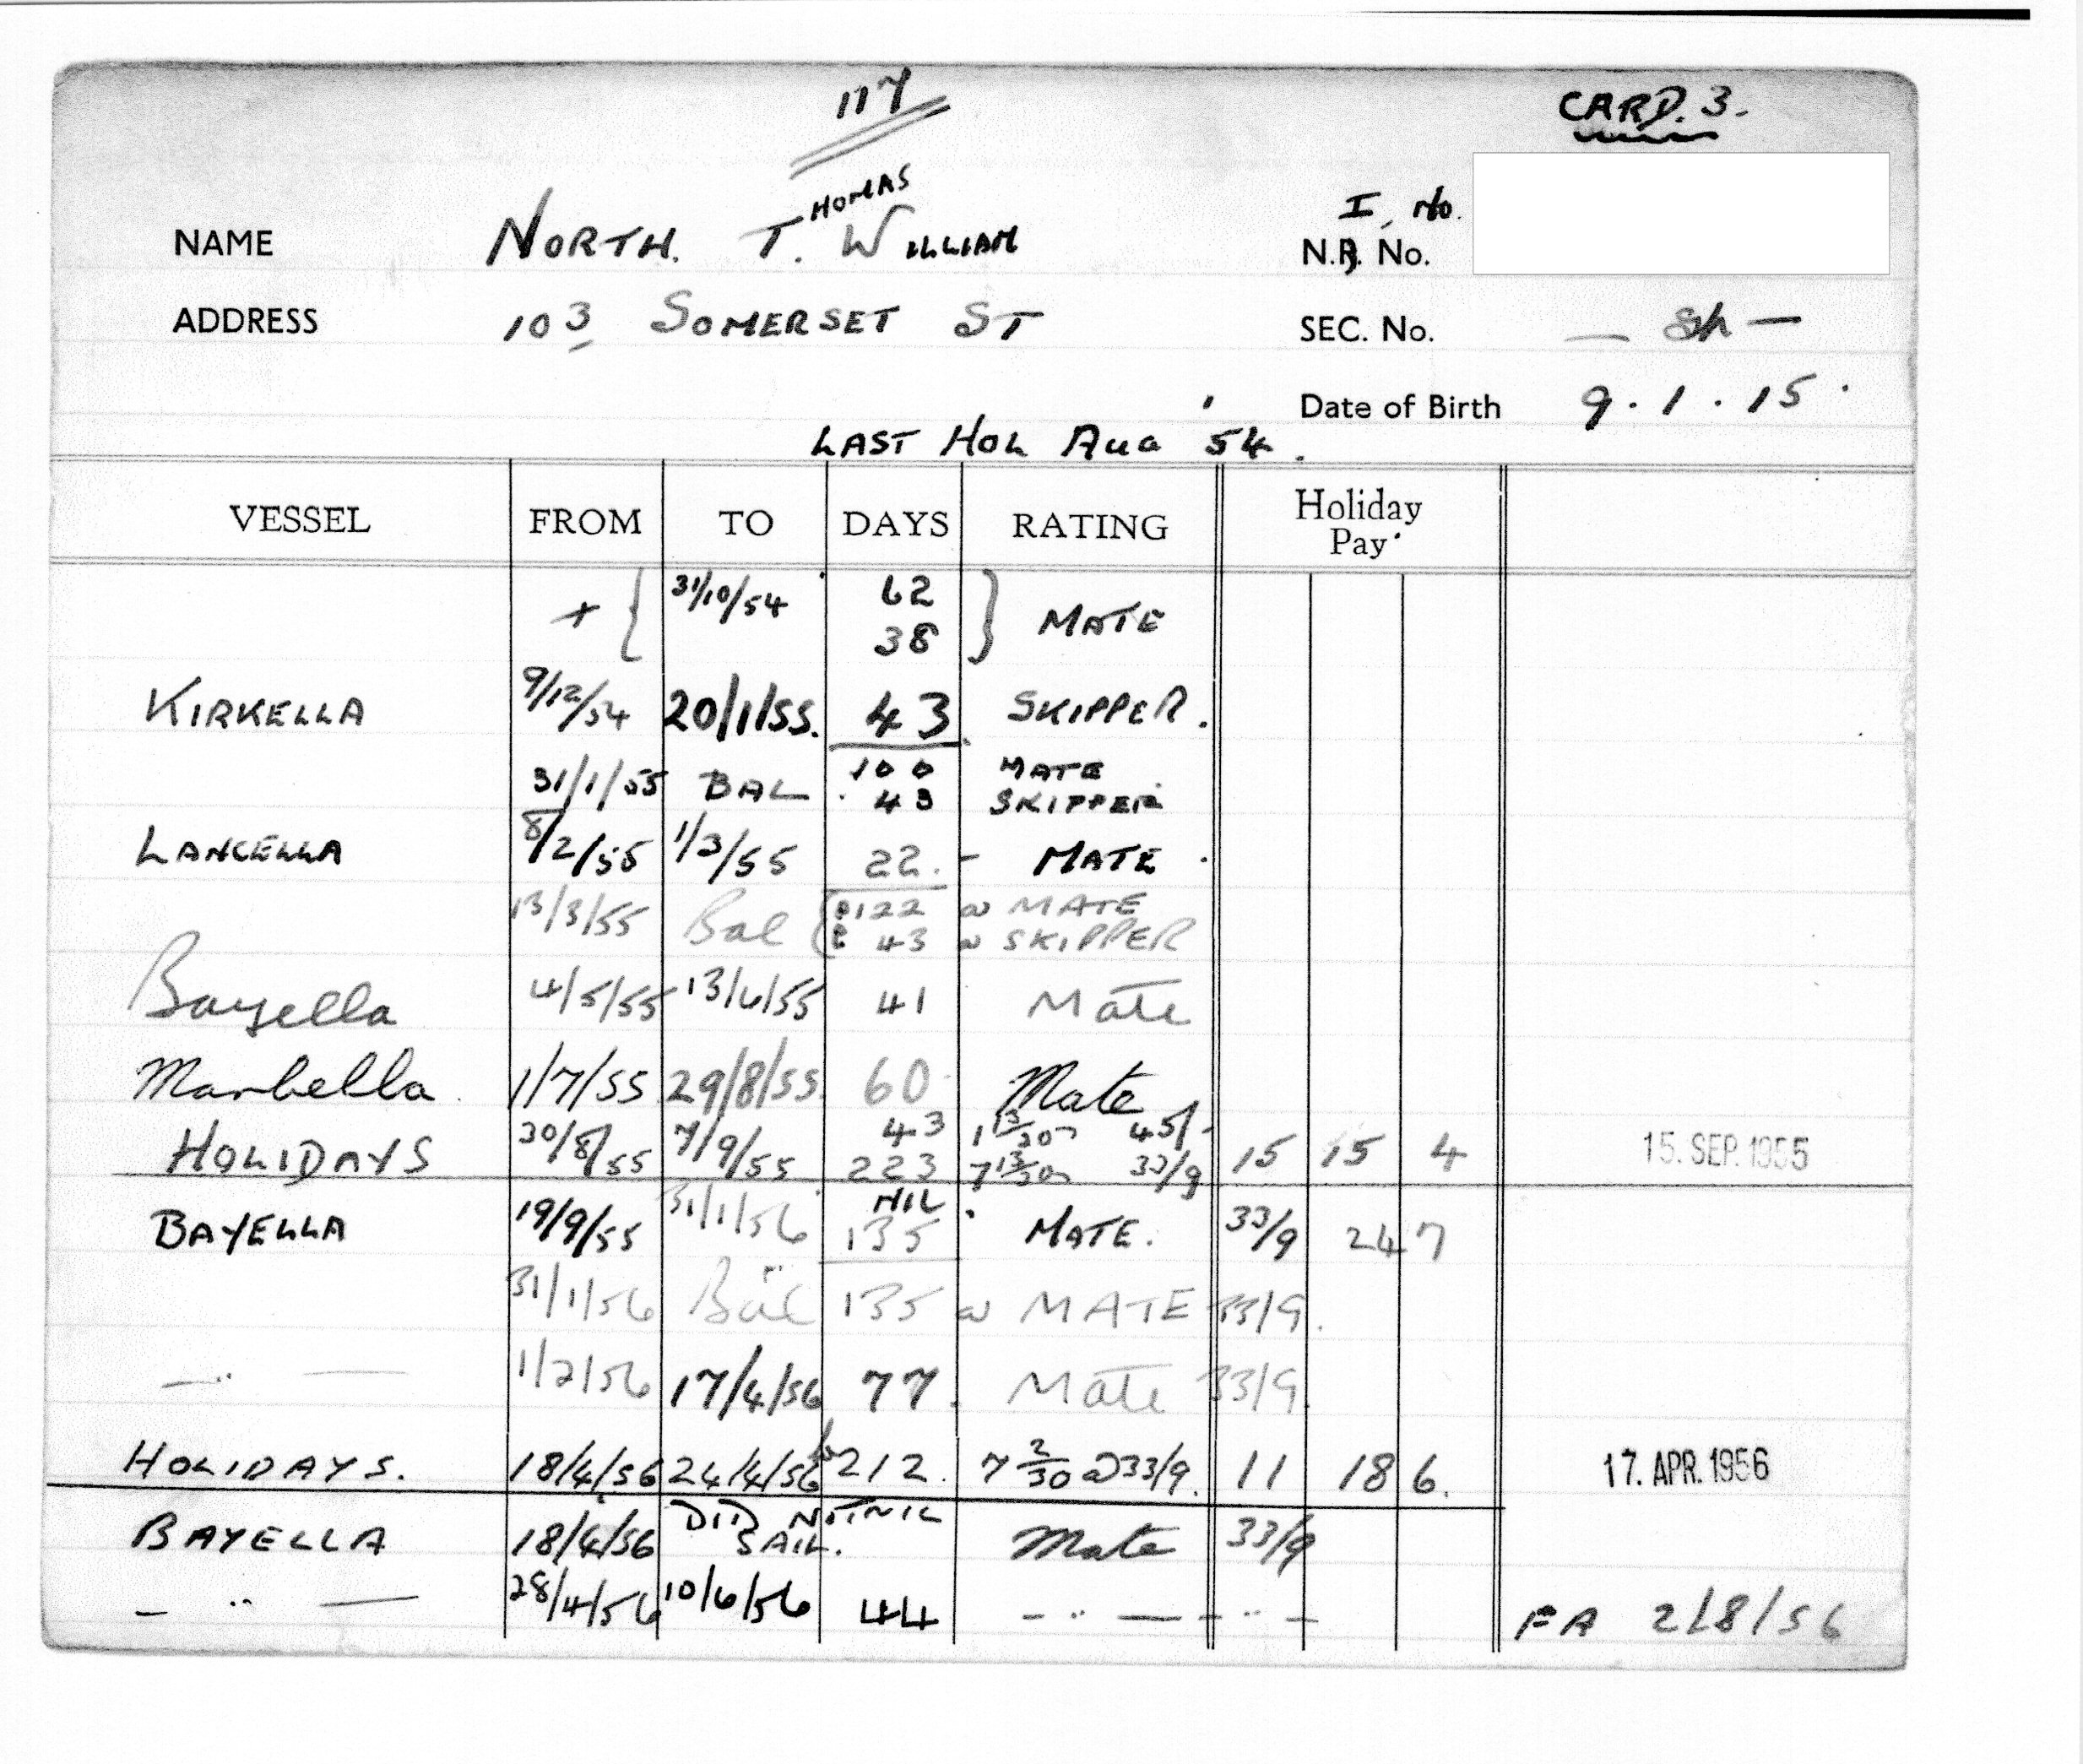 117
CARD. 3.
HOMAS
I. No.
NAME NORTH. T. WILLIAM N.R. No.
ADDRESS 103 SOMERSET ST SEC. No. —
Date of Birth 9.1.15
LAST HOL AUG '54.
VESSEL FROM TO DAYS RATING Holiday Pay
+ { 31/10/54 62 } MATE
38
KIRKELLA 9/12/54 20/1/55. 43 SKIPPER.
31/1/55 BAL 100 MATE
43 SKIPPER
LANCELLA 8/2/55 1/3/55 22. - MATE
13/3/55 Bal 122 @ MATE
43 @ SKIPPER
Bayella 4/5/55 13/6/55 41 Mate
Marbella. 1/7/55 29/8/55 60 Mate
43 1 13/30 45/-
HOLIDAYS 30/8/55 7/9/55 223 7 13/30 33/9 15 15 4 15. SEP. 1955
NIL
BAYELLA 19/9/55 31/1/56 135 MATE. 33/9 247
31/1/56 Bal 135 @ MATE 33/9.
— " — 1/2/56 17/4/56 77. Mate 33/9.
HOLIDAYS. 18/4/56 24/4/56 212. 7 2/30 @ 33/9. 11 18 6. 17. APR. 1956
BAYELLA 18/4/56 DID NOT NIL
SAIL. Mate 33/9
— " — 28/4/56 10/6/56 44 — " — " — FA 2/8/56